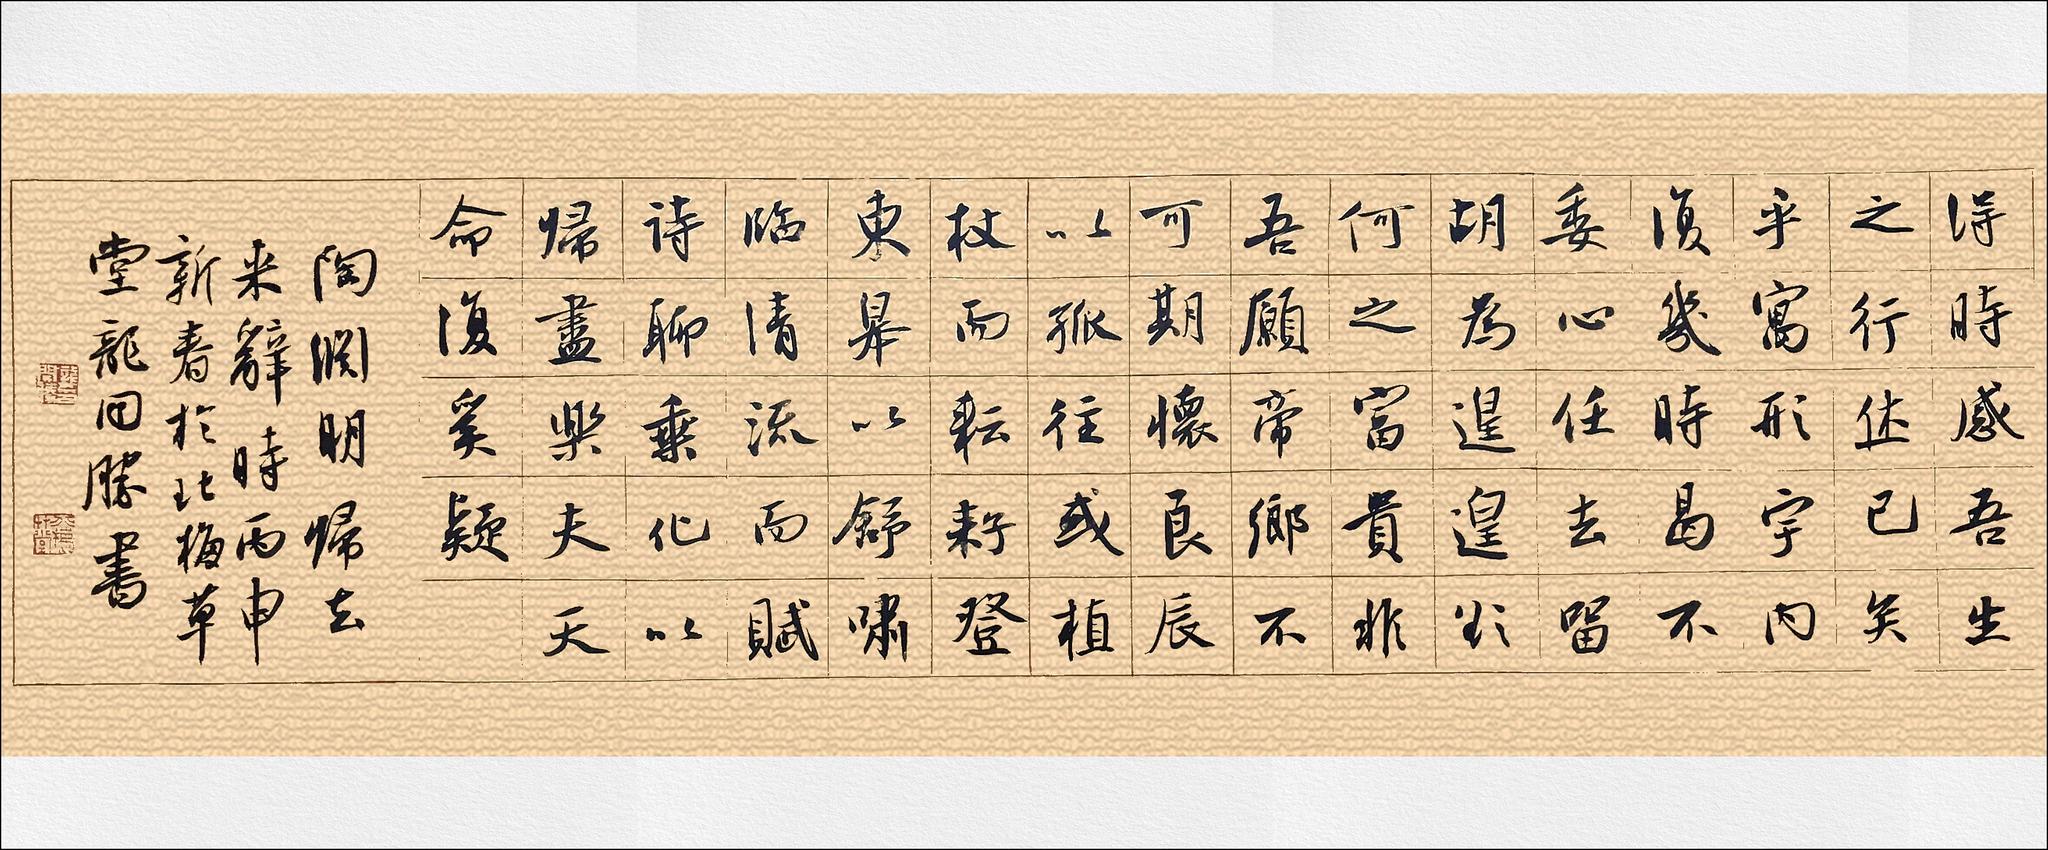 得時感吾生
之行休已矣
乎寓形宇内
復幾時曷不
委心任去留
胡為遑遑欲
何之富貴非
吾願帝鄉不
可期懷良辰
以孤往或植
杖而耘耔登
東皋以舒嘯
臨清流而賦
詩聊乘化以
歸盡樂夫天
命復奚疑
陶淵明歸去
来辭時丙申
新春於北梅草
堂龍回勝書